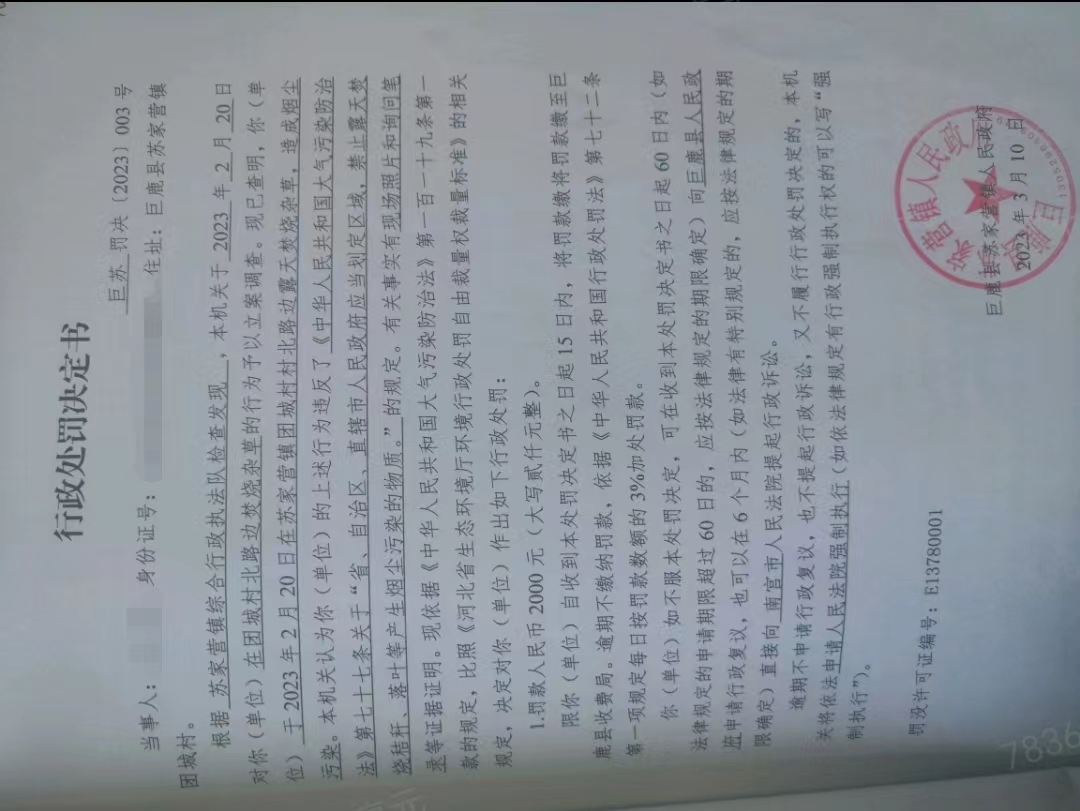 行政处罚决定书
巨苏 罚决〔2023〕003 号
当事人: 身份证号: 住址:巨鹿县苏家营镇
团城村。
根据 苏家营镇综合行政执法队检查发现 ,本机关于 2023 年 2 月 20 日
对你(单位)在团城村北路边焚烧杂草的行为予以立案调查。现已查明,你(单
位)于 2023 年 2 月 20 日在苏家营镇团城村村北路边露天焚烧杂草,造成烟尘
污染。本机关认为你(单位)的上述行为违反了《中华人民共和国大气污染防治
法》第七十七条关于“省、自治区、直辖市人民政府应当划定区域,禁止露天焚
烧秸秆、落叶等产生烟尘污染的物质。”的规定。有关事实有现场照片和询问笔
录等证据证明。现依据《中华人民共和国大气污染防治法》第一百一十九条第一
款的规定,比照《河北省生态环境厅环境行政处罚自由裁量权裁量标准》的相关
规定,决定对你(单位)作出如下行政处罚:
1.罚款人民币 2000 元(大写贰仟元整)。
限你(单位)自收到本处罚决定书之日起 15 日内,将罚款缴将罚款缴至巨
鹿县收费局。逾期不缴纳罚款,依据《中华人民共和国行政处罚法》第七十二条
第一项规定每日按罚款数额的 3%加处罚款。
你(单位)如不服本处罚决定,可在收到本处罚决定书之日起 60 日内(如
法律规定的申请期限超过 60 日的,应按法律规定的期限确定)向巨鹿县人民政
府申请行政复议,也可以在 6 个月内(如法律有特别规定的,应按法律规定的期
限确定)直接向 南宫市人民法院提起行政诉讼。
逾期不申请行政复议,也不提起行政诉讼,又不履行行政处罚决定的,本机
关将依法申请人民法院强制执行(如依法律规定有行政强制执行权的可以写“强
制执行”)。
罚没许可证编号:E13780001
巨鹿县苏家营镇人民政府
2023 年 3 月 10 日
7836